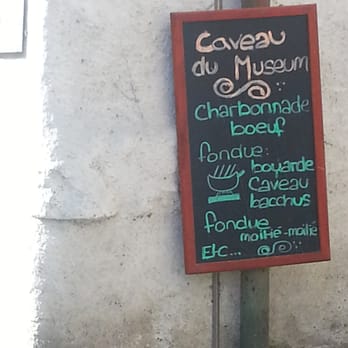 Caveau
du Museum
Charbonnade
boeuf
fondue:
boyarde
Caveau
bacchus
fondue
moitié-moitié
Etc...